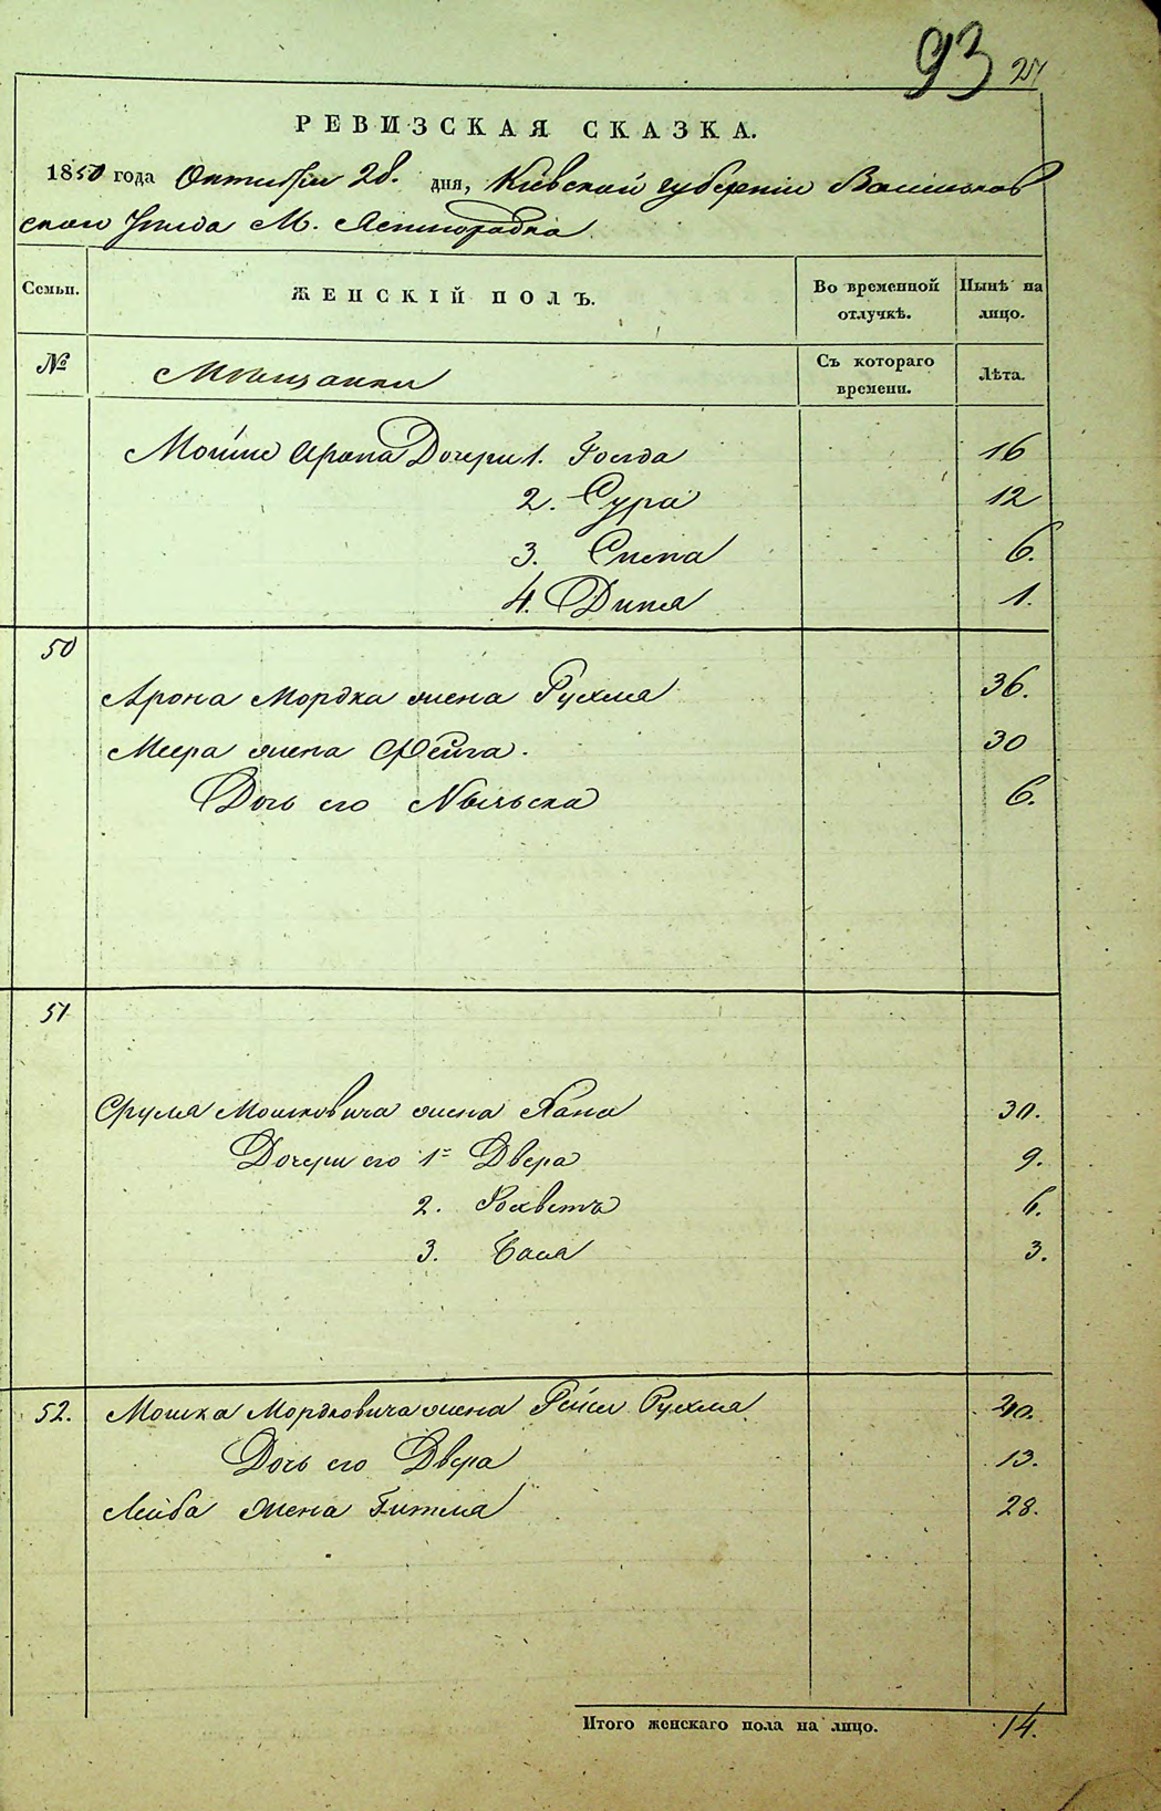 93
РЕВИЗСКАЯ СКАЗКА.
1850 года Октября 28. дня, Кіевской губерніи Васильков
скаго Уезда М.
Семьи. ЖЕНСКІЙ ПОЛЪ. Во временной отлучкѣ. Нынѣ на лицо.
№ Мѣщанки Съ котораго времени. Лѣта.
Мошка Арона Дочери 1. Голда 16
2. Сура 12
3. 6.
4. 1.
50
Арона Мордка жена Рухля 36.
Меера жена Фейга. 30
Дочь его 6.
51
Сруля Мошковича жена Хана 30.
Дочери его 1я Двера 9.
2. 6.
3. Бася 3.
52. Мошка Мордковича жена Рейзя Рухля
Дочь его Двера 13.
Лейба жена Гитля 28.
Итого женскаго пола на лицо. 14.